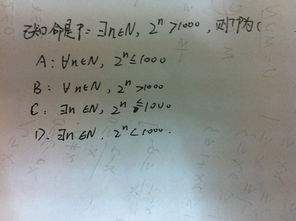 已知命题P:∃n∈N, 2ⁿ>1000, 则¬P为(
A:∀n∈N, 2ⁿ≤1000
B:∀n∈N, 2ⁿ>1000
C:∃n∈N, 2ⁿ≤1000
D.∃n∈N. 2ⁿ<1000.